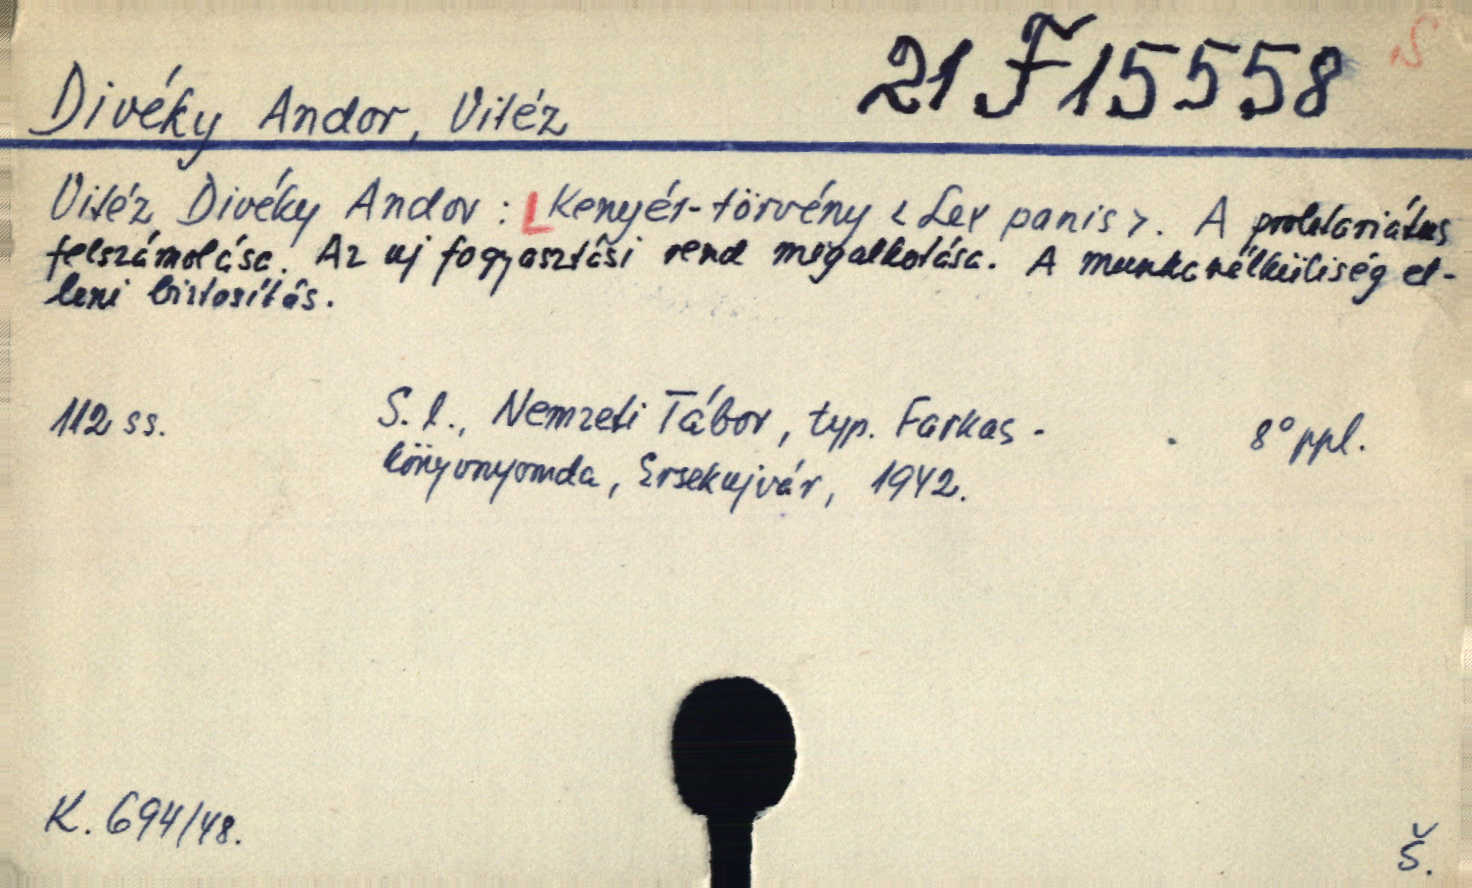 21 F 15558
S
Divéky Andor, Vitéz
Vitéz Divéky Andor : [Kenyér-törvény <Lex panis>. A proletariátus
felszámolása. Az uj fogyasztási rend megalkotása. A munkanélküliség el-
leni biztosítás.
112 ss.
S. l., Nemzeti Tábor, typ. Farkas-
könyvnyomda, Ersekujvár, 1942.
8° ppl.
K. 694/48.
Š.